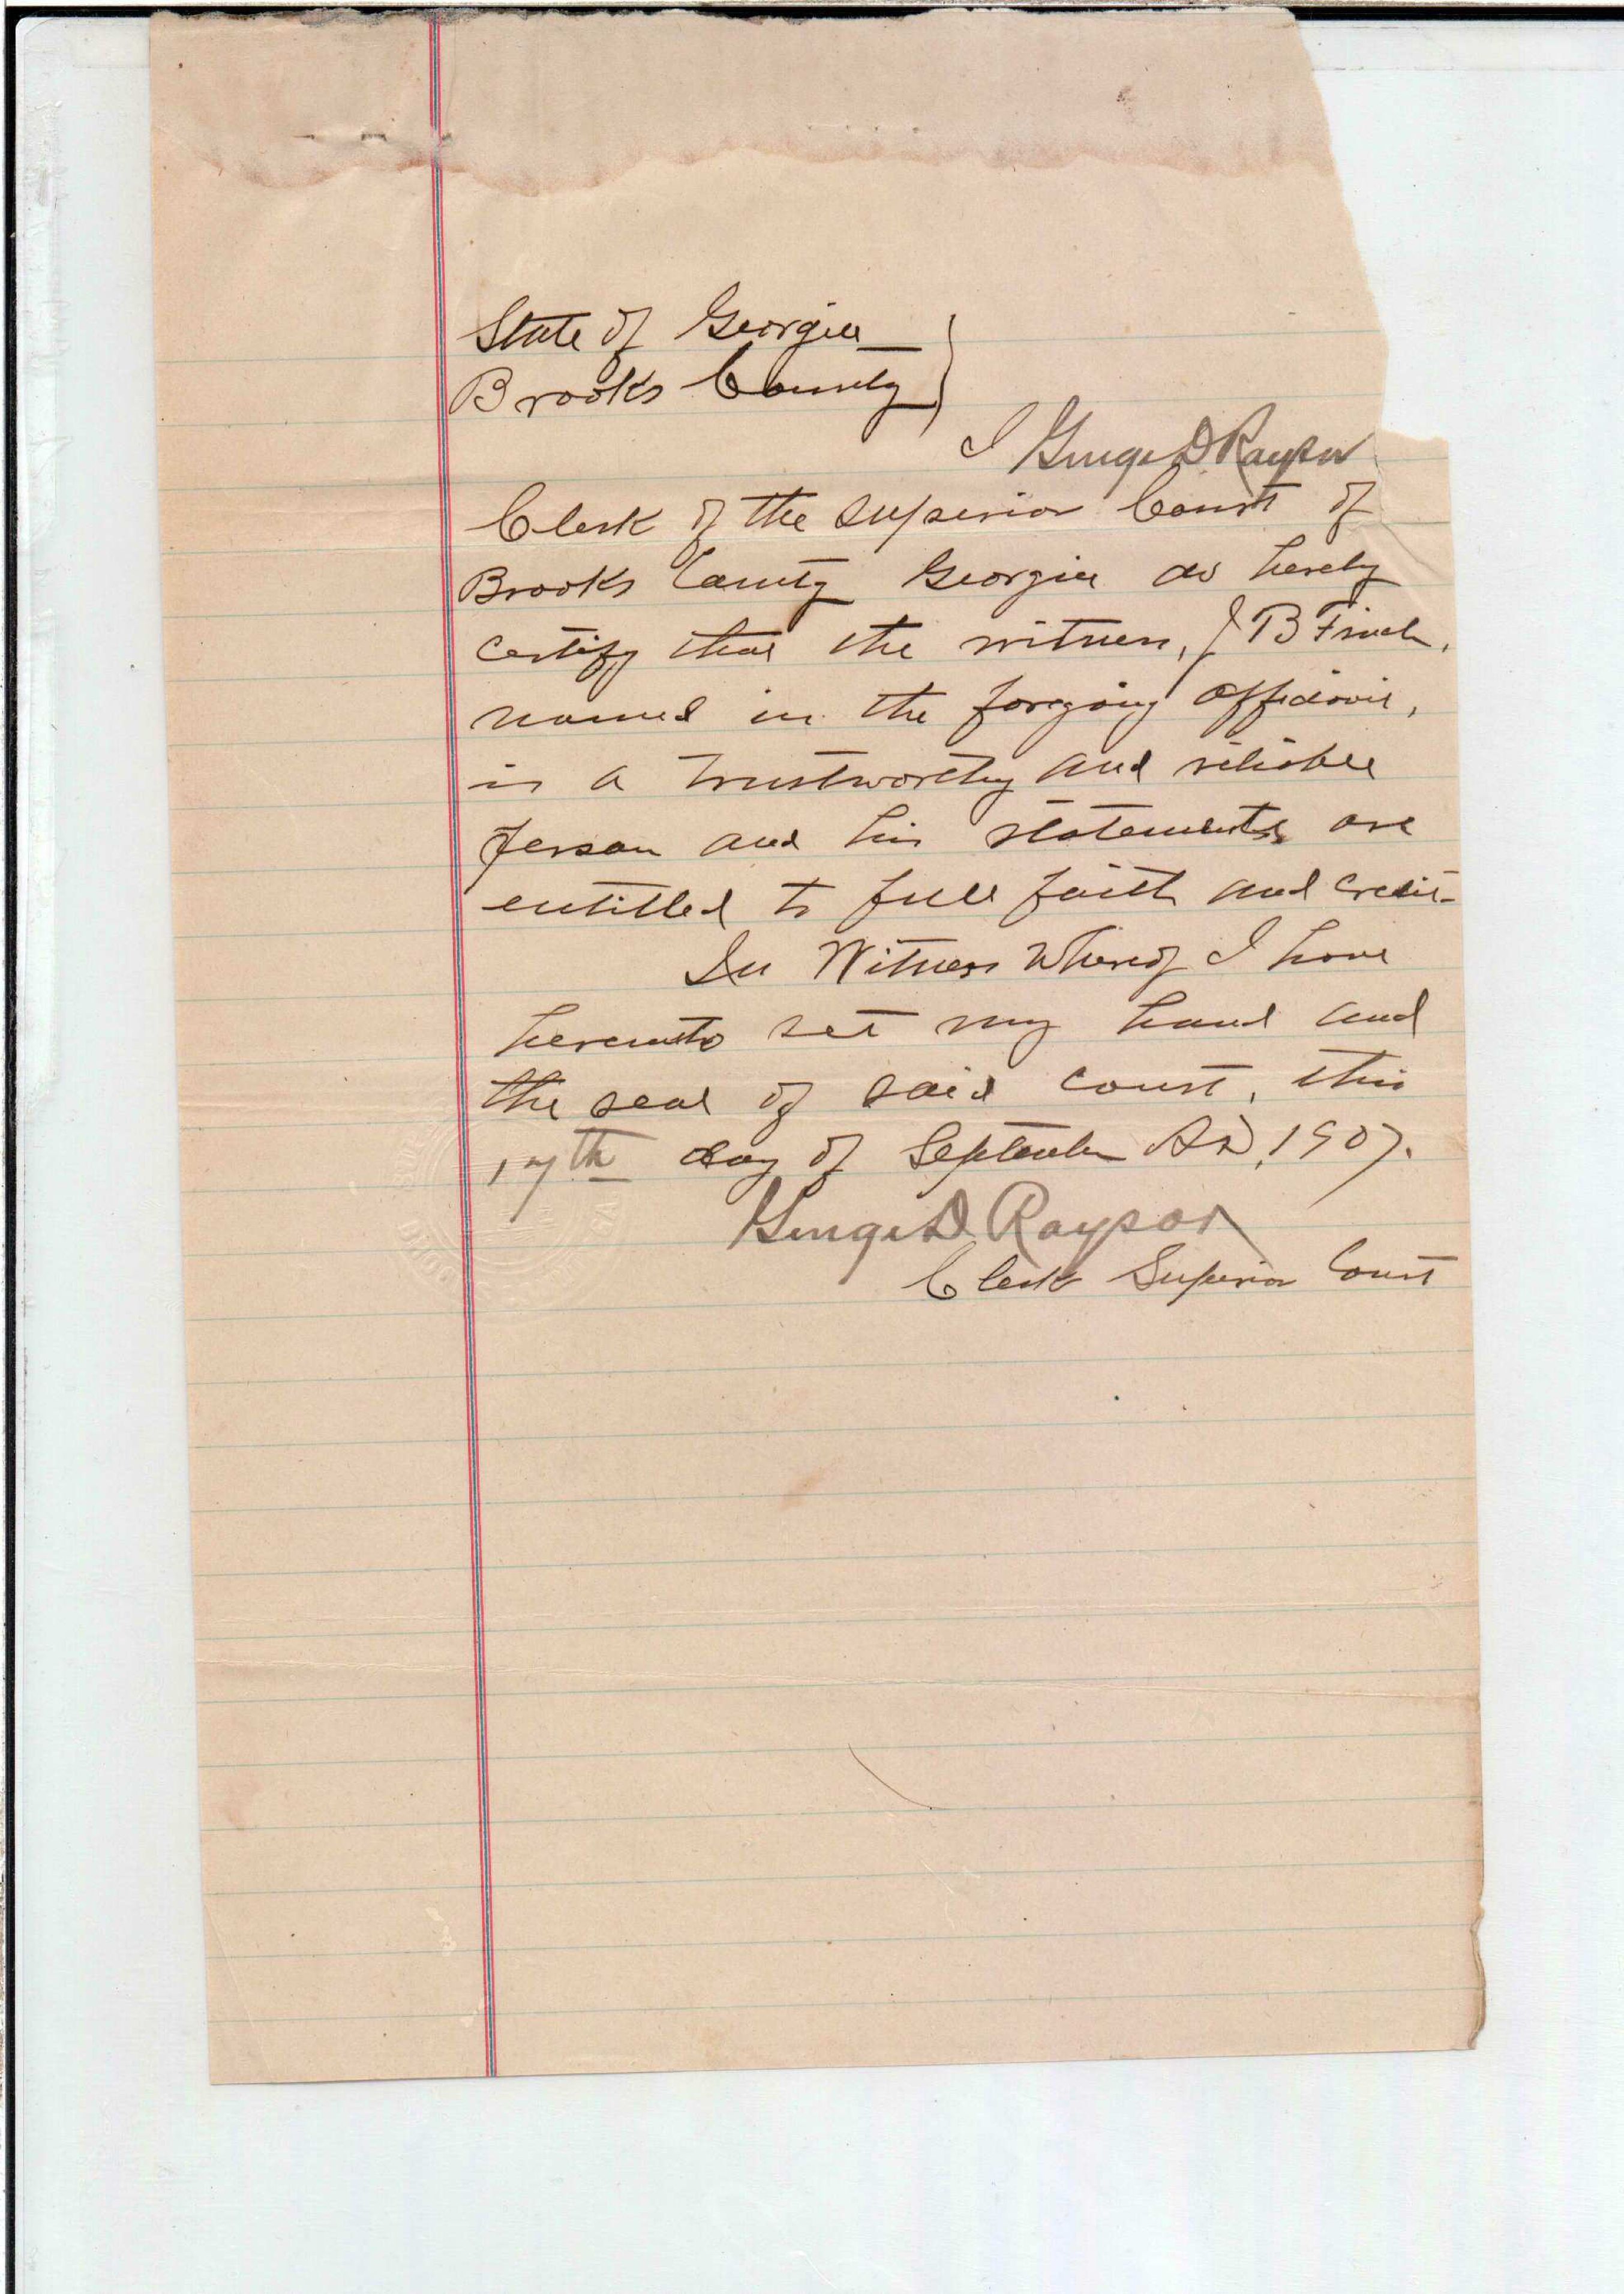 State of Georgia
Brooks County
I George D Raysor
Clerk of the Superior Court of
Brooks County Georgia do hereby
certify that the witness, J B Finch,
named in the forgoing affidavit,
is a trustworthy and reliable
person and his statements are
entitled to full faith and credit
In Witness Whereof I have
hereunto set my hand and
the seal of said court, this
17th day of September AD, 1907.
George D Raysor
Clerk Superior Court